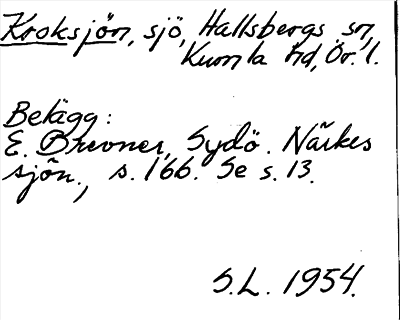 Kroksjön, sjö, Hallsbergs sn,
Kumla hd, Ör. l.
Belägg:
E. Brevner, Sydö. Närkes
sjön., s. 166. Se s. 13.
S.L. 1954.